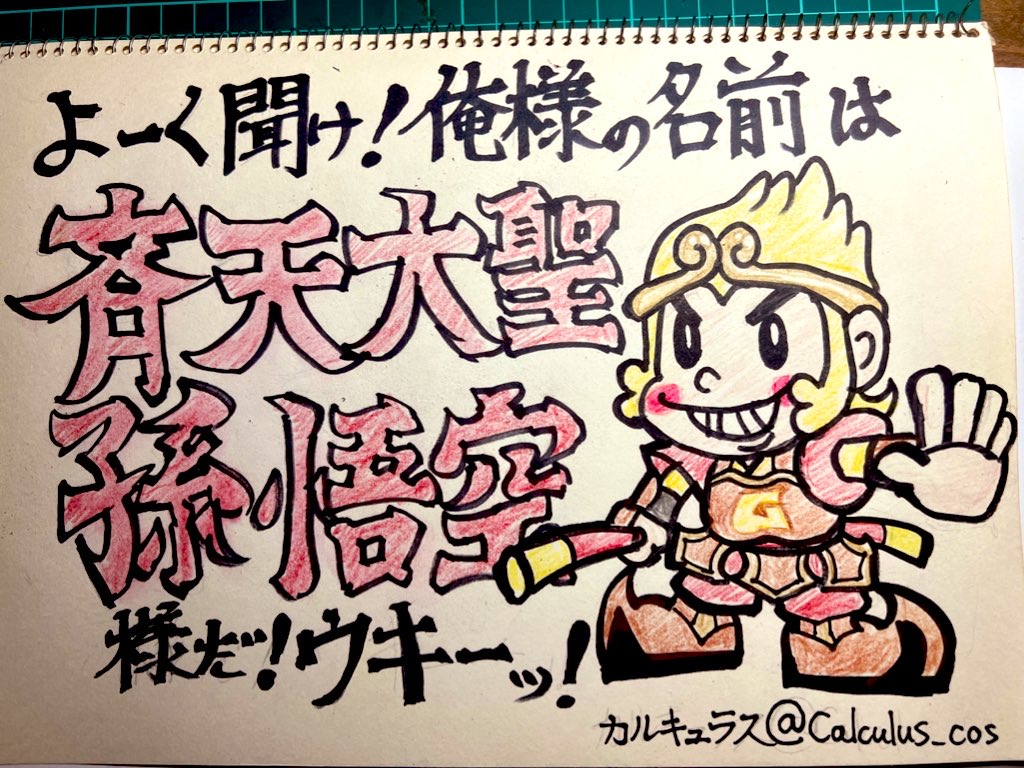 よーく聞け！俺様の名前は
斉天大聖
孫悟空
様だ！ウキーッ！
G
カルキュラス@Calculus_cos